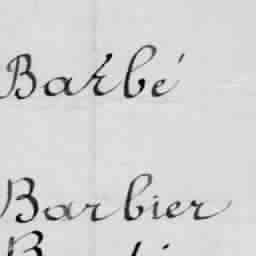 Barbé
Barbier